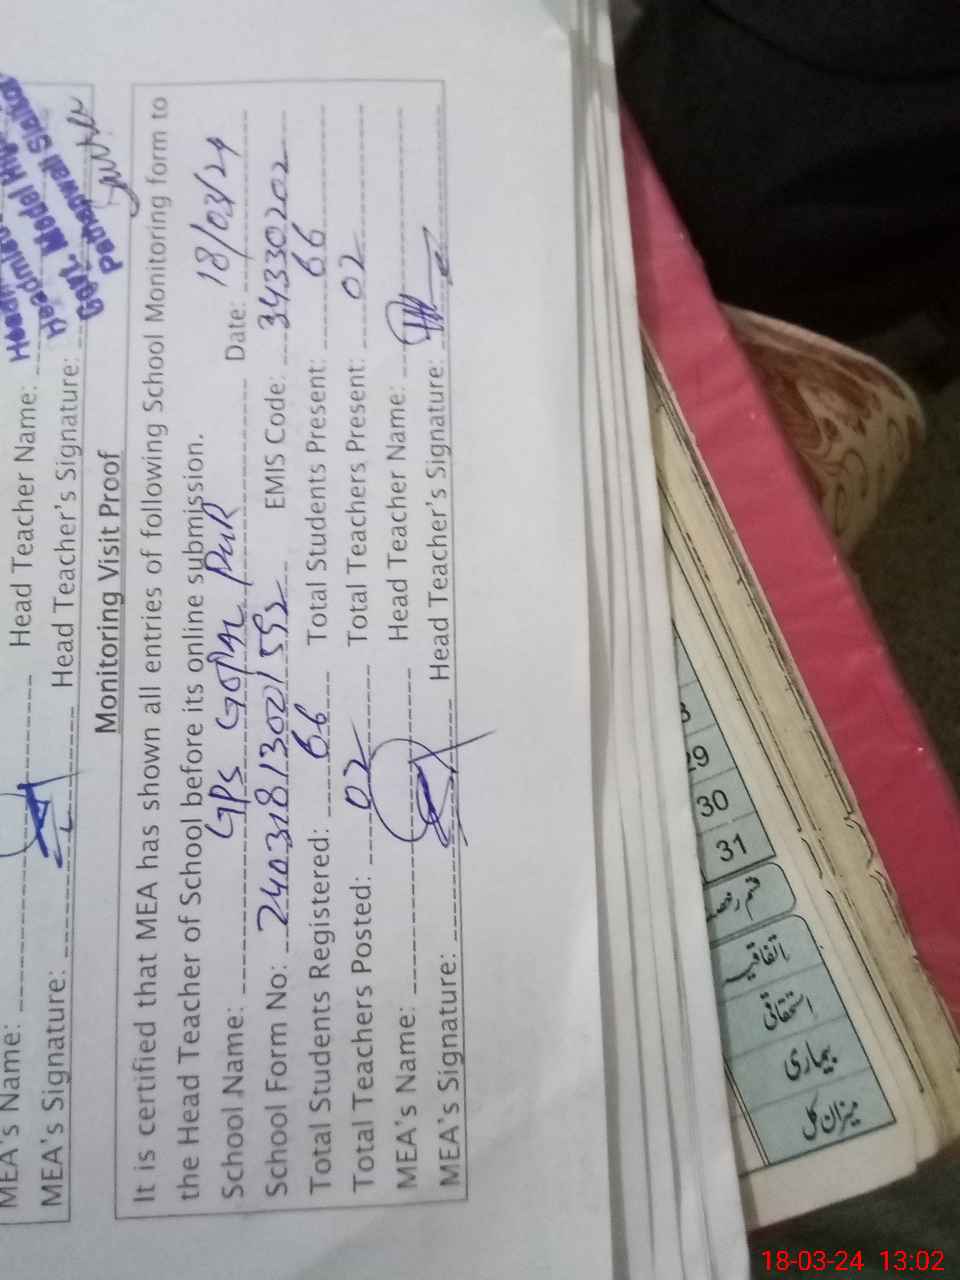 MEA's Name: Head Teacher Name:
MEA's Signature: Head Teacher's Signature:
Govt. Model
Monitoring Visit Proof
It is certified that MEA has shown all entries of following School Monitoring form to
the Head Teacher of School before its online submission.
School Name: GPS Gopal PUR Date: 18/03/24
School Form No: 24031813001552 EMIS Code: 34330202
Total Students Registered: 66 Total Students Present: 66
Total Teachers Posted: 02 Total Teachers Present: 02
MEA's Name: Head Teacher Name:
MEA's Signature: Head Teacher's Signature:
29
30
31
اتفاقیہ
استحقاقی
بیماری
میزان کل
18-03-24 13:02